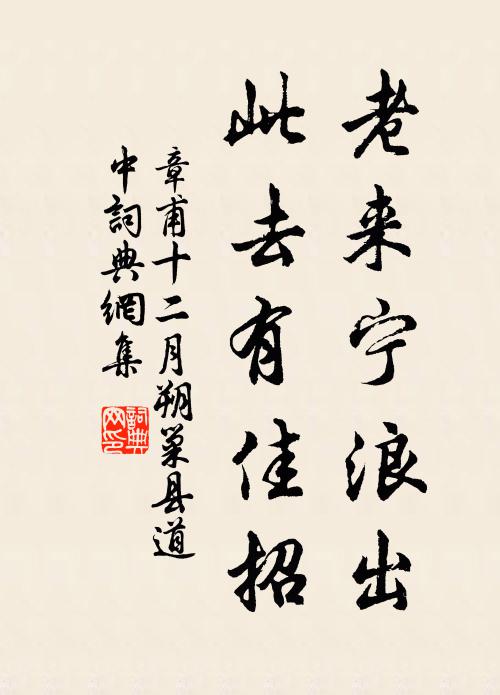 老来宁浪出
此去有佳招
章甫十二月朔巢县道
中詞典網集
詞典
网印